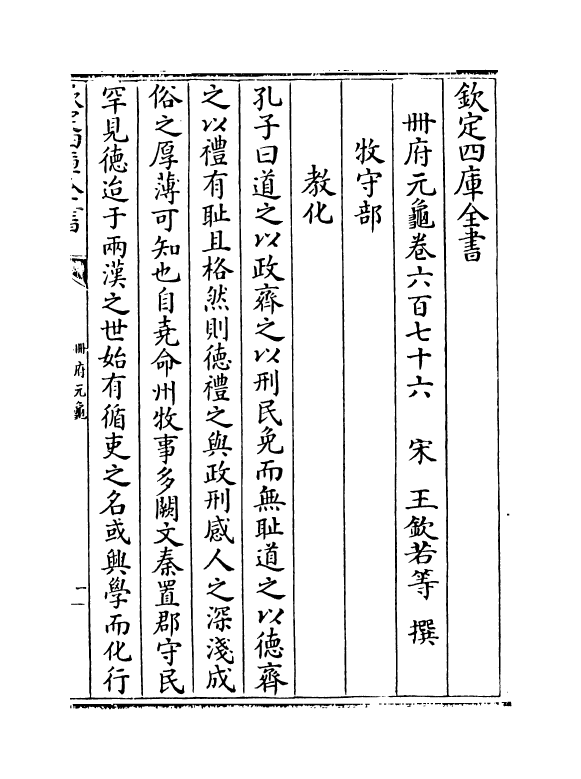 欽定四庫全書
冊府元龜卷六百七十六　宋　王欽若等　撰
牧守部
教化
孔子曰道之以政齊之以刑民免而無耻道之以德齊
之以禮有耻且格然則德禮之與政刑感人之深淺成
俗之厚薄可知也自堯命州牧事多闕文秦置郡守民
罕見德迨于兩漢之世始有循吏之名或興學而化行
欽定四庫全書
冊府元龜
一